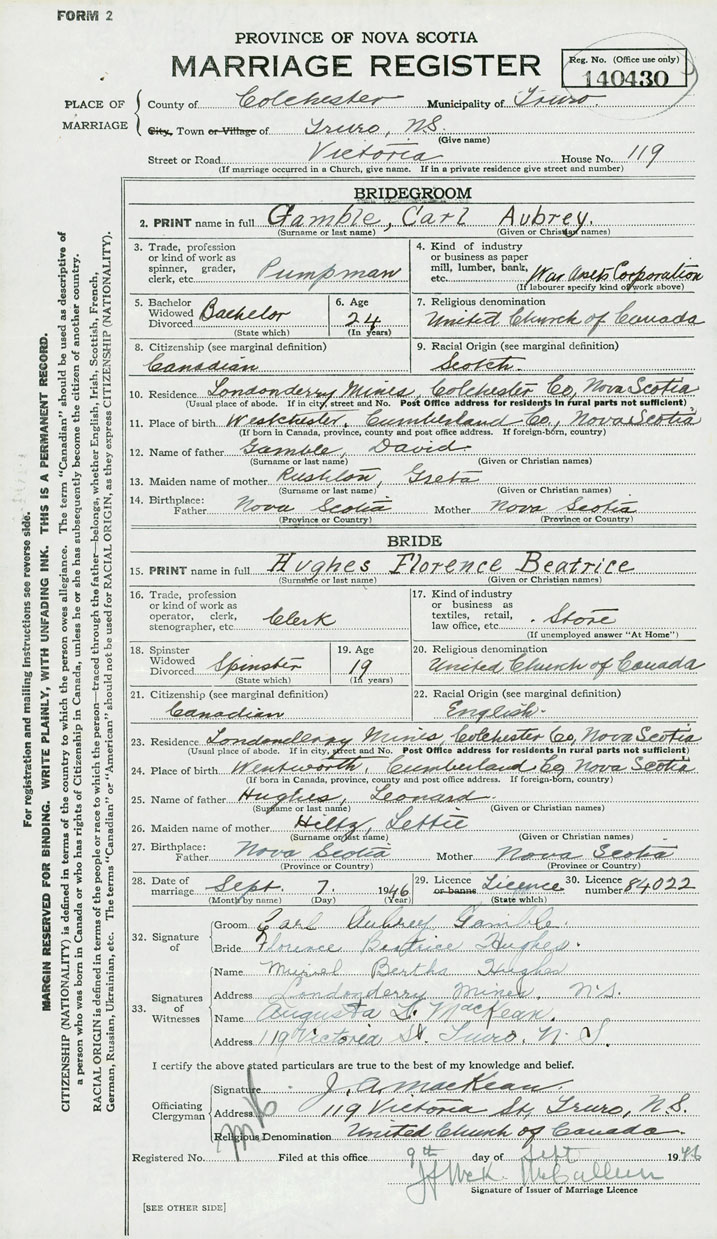 FORM 2
PROVINCE OF NOVA SCOTIA
MARRIAGE REGISTER
Reg. No. (Office use only)
140430
PLACE OF MARRIAGE
County of Colchester Municipality of Truro.
City, Town or Village of Truro, N.S.
(Give name)
Street or Road Victoria House No. 119
(If marriage occurred in a Church, give name. If in a private residence give street and number)
BRIDEGROOM
2. PRINT name in full Gamble, Carl Aubrey.
(Surname or last name) (Given or Christian names)
3. Trade, profession or kind of work as spinner, grader, clerk, etc. Pumpman
4. Kind of industry or business as paper mill, lumber, bank, etc. War Assets Corporation
(If labourer specify kind of work above)
5. Bachelor Widowed Divorced Bachelor
(State which)
6. Age 24
(In years)
7. Religious denomination
United Church of Canada
8. Citizenship (see marginal definition)
Canadian
9. Racial Origin (see marginal definition)
Scotch.
10. Residence Londonderry Mines, Colchester Co, Nova Scotia
(Usual place of abode. If in city, street and No. Post Office address for residents in rural parts not sufficient)
11. Place of birth Westchester, Cumberland Co, Nova Scotia
(If born in Canada, province, county and post office address. If foreign-born, country)
12. Name of father Gamble, David
(Surname or last name) (Given or Christian names)
13. Maiden name of mother Rushton, Greta
(Surname or last name) (Given or Christian names)
14. Birthplace: Father Nova Scotia Mother Nova Scotia
(Province or Country) (Province or Country)
BRIDE
15. PRINT name in full Hughes Florence Beatrice
(Surname or last name) (Given or Christian names)
16. Trade, profession or kind of work as operator, clerk, stenographer, etc. Clerk
17. Kind of industry or business as textiles, retail, law office, etc. Store
(If unemployed answer "At Home")
18. Spinster Widowed Divorced Spinster
(State which)
19. Age 19
(In years)
20. Religious denomination
United Church of Canada
21. Citizenship (see marginal definition)
Canadian
22. Racial Origin (see marginal definition)
English.
23. Residence Londonderry Mines, Colchester Co, Nova Scotia
(Usual place of abode. If in city, street and No. Post Office address for residents in rural parts not sufficient)
24. Place of birth Wentworth, Cumberland Co, Nova Scotia
(If born in Canada, province, county and post office address. If foreign-born, country)
25. Name of father Hughes, Leonard
(Surname or last name) (Given or Christian names)
26. Maiden name of mother Hiltz, Lettie
(Surname or last name) (Given or Christian names)
27. Birthplace: Father Nova Scotia Mother Nova Scotia
(Province or Country) (Province or Country)
28. Date of marriage Sept. 7. 1946
(Month by name) (Day) (Year)
29. Licence or banns Licence
(State which)
30. Licence number 84022
32. Signature of
Groom Carl Aubrey Gamble.
Bride Florence Beatrice Hughes.
33. Signatures of Witnesses
Name Muriel Bertha Hughes
Address Londonderry Mines, N.S.
Name Augusta L. MacKean.
Address 119 Victoria St. Truro, N.S.
I certify the above stated particulars are true to the best of my knowledge and belief.
Officiating Clergyman
Signature J. A. MacKean
Address 119 Victoria St, Truro, N.S.
Religious Denomination United Church of Canada.
Registered No. Filed at this office 9th day of Sept 1946
McCallum
Signature of Issuer of Marriage Licence
[SEE OTHER SIDE]
For registration and mailing instructions see reverse side.
MARGIN RESERVED FOR BINDING. WRITE PLAINLY, WITH UNFADING INK. THIS IS A PERMANENT RECORD.
CITIZENSHIP (NATIONALITY) is defined in terms of the country to which the person owes allegiance. The term "Canadian" should be used as descriptive of
a person who was born in Canada or who has rights of Citizenship in Canada, unless he or she has subsequently become the citizen of another country.
RACIAL ORIGIN is defined in terms of the people or race to which the person—traced through the father—belongs, whether English, Irish, Scottish, French,
German, Russian, Ukrainian, etc. The terms "Canadian" or "American" should not be used for RACIAL ORIGIN, as they express CITIZENSHIP (NATIONALITY).